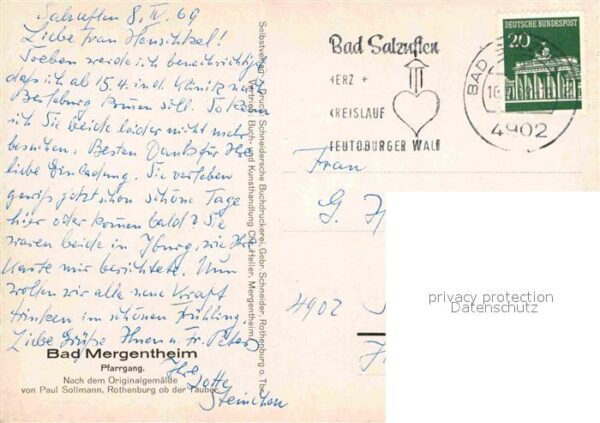 Salzuflen 8. IV. 69
Liebe Frau
Soeben werde ich benachrichtigt
dass ich ab 15.4. in d. Klinik nach
kommen soll. So kann
ich Sie beide leider nicht mehr
besuchen. Besten Dank für Ihre
liebe Einladung. Sie verleben
gewiß jetzt schon schöne Tage
hier oder kommen bald? Sie
waren beide in Iburg, wie Ihre
Karte mir berichtete. Nun
wollen wir alle neue Kraft
trinken im schönen Frühling.
Liebe Grüße Ihnen u. Fr. Peters
Ihre
Lotte
Bad Mergentheim
Pfarrgang.
Nach dem Originalgemälde
von Paul Sollmann, Rothenburg ob der Tauber
Selbstverlag u. Druck: Schneidersche Buchdruckerei, Gebr. Schneider, Rothenburg o. Tbr.
Vertrieb: Buch- und Kunsthandlung Chr. Heller, Mergentheim
Bad Salzuflen
HERZ +
KREISLAUF
TEUTOBURGER WALD
DEUTSCHE BUNDESPOST
20
BAD
4902
Frau
G. H
4902
privacy protection
Datenschutz